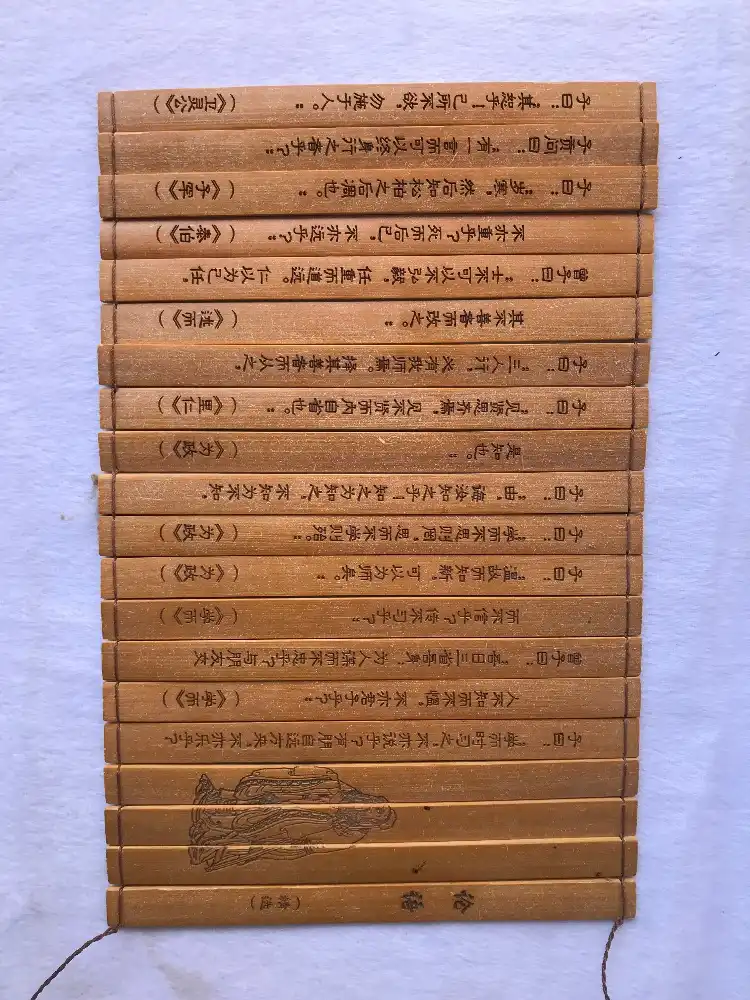 论语 （精选）
子曰：“学而时习之，不亦说乎？有朋自远方来，不亦乐乎？
人不知而不愠，不亦君子乎？” （《学而》）
曾子曰：“吾日三省吾身，为人谋而不忠乎？与朋友交
而不信乎？传不习乎？” （《学而》）
子曰：“温故而知新，可以为师矣。” （《为政》）
子曰：“学而不思则罔，思而不学则殆。” （《为政》）
子曰：“由，诲汝知之乎！知之为知之，不知为不知，
是知也。” （《为政》）
子曰：“见贤思齐焉，见不贤而内自省也。” （《里仁》）
子曰：“三人行，必有我师焉。择其善者而从之，
其不善者而改之。” （《述而》）
曾子曰：“士不可以不弘毅，任重而道远。仁以为己任，
不亦重乎？死而后已，不亦远乎？” （《泰伯》）
子曰：“岁寒，然后知松柏之后凋也。” （《子罕》）
子贡问曰：“有一言而可以终身行之者乎？”
子曰：“其恕乎！己所不欲，勿施于人。” （《卫灵公》）